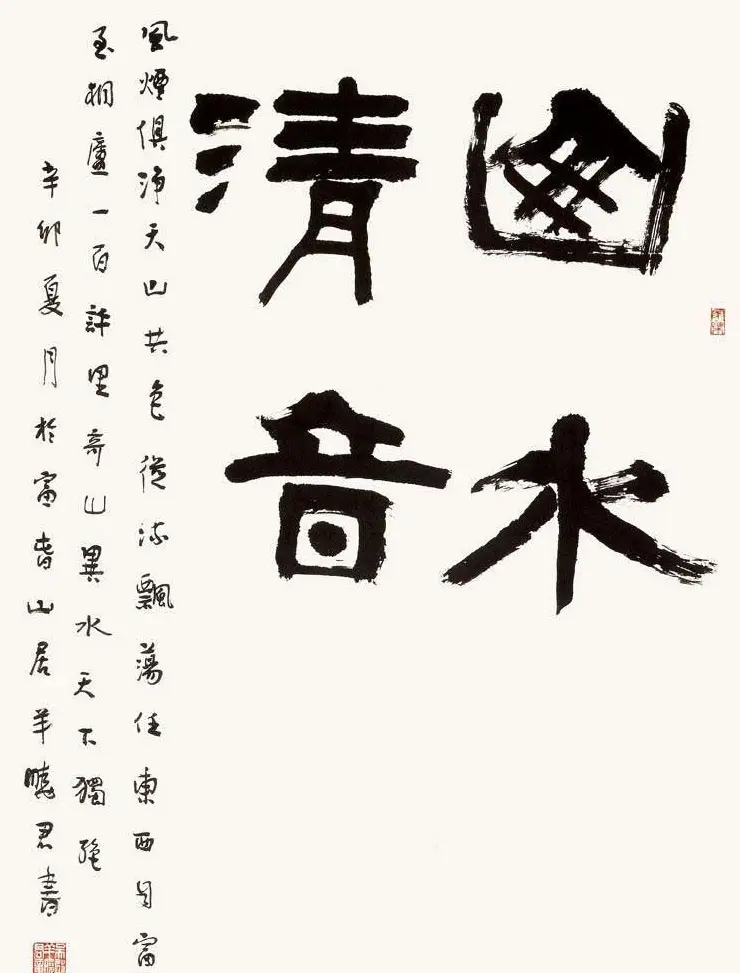 山水
清音
風煙俱淨天山共色從流飄蕩任東西自富
至桐廬一百許里奇山異水天下獨絕
辛卯夏月於富春山居羊曉君書